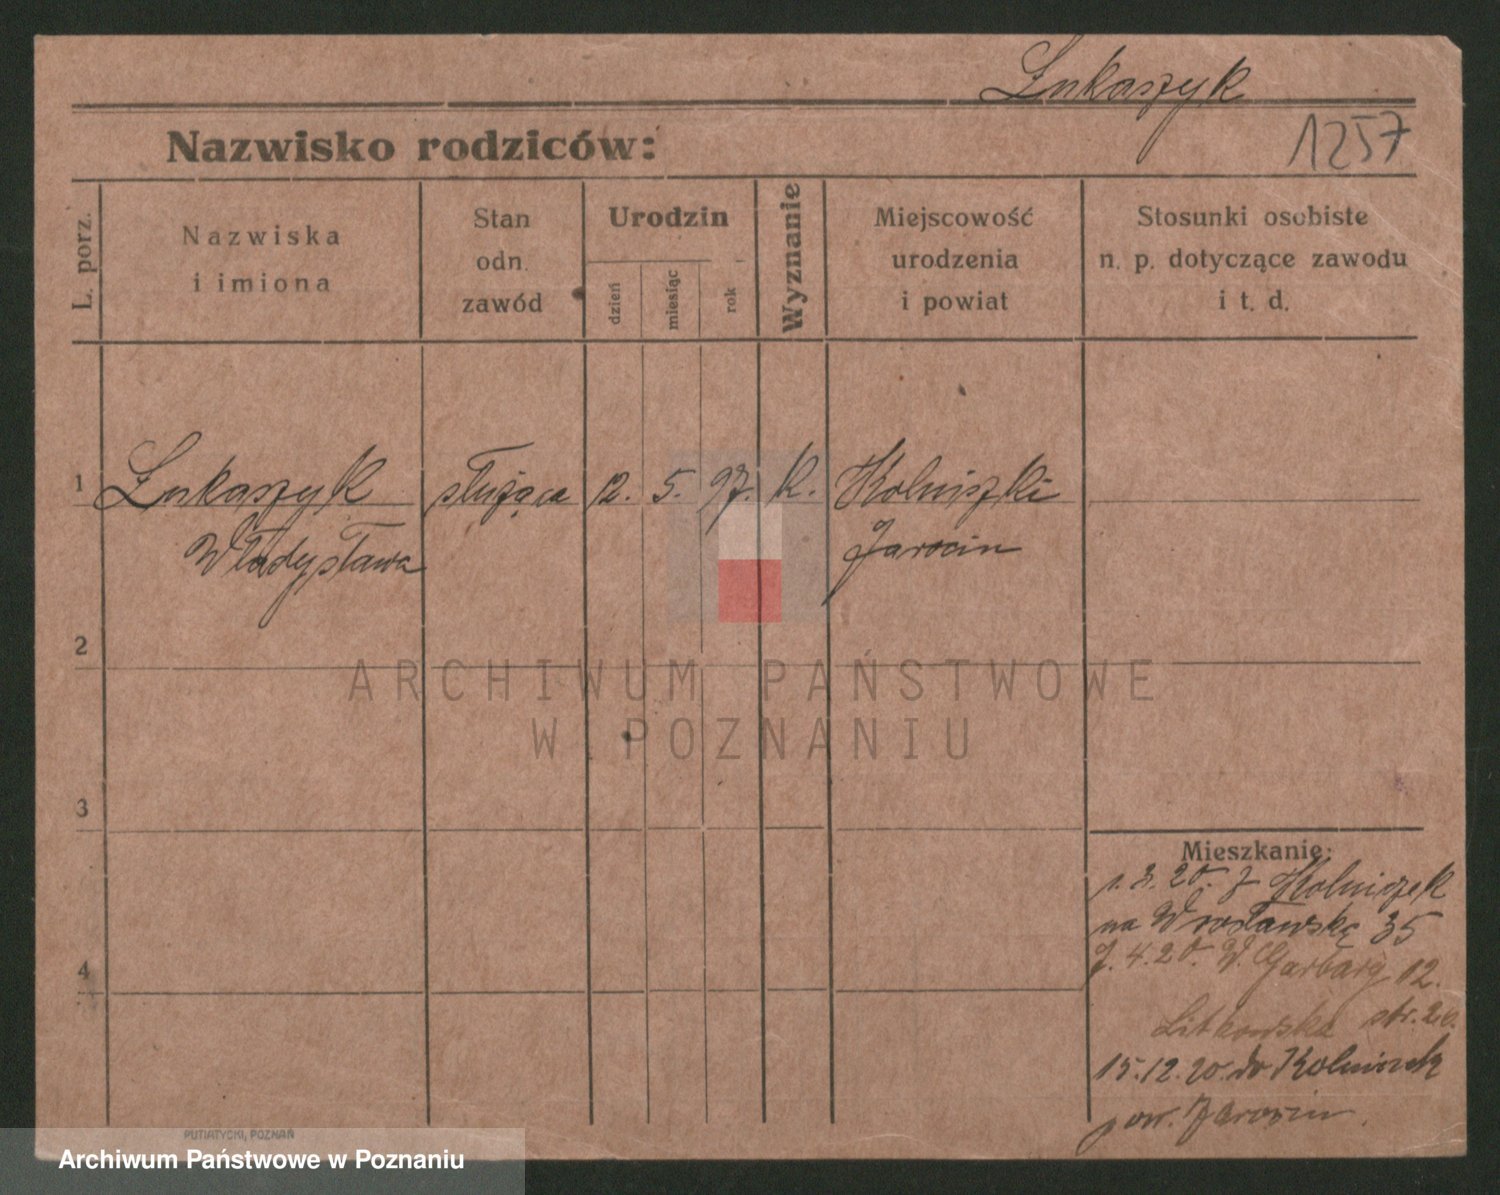 Łukaszyk
Nazwisko rodziców:
1257
L. porz.
Nazwiska
i imiona
Stan
odn.
zawód
Urodzin
dzień
miesiąc
rok
Wyznanie
Miejscowość
urodzenia
i powiat
Stosunki osobiste
n. p. dotyczące zawodu
i t. d.
1 Łukaszyk służąca 12. 5. 97. K. Kolniszki
Władysława Jarocin
2
ARCHIWUM PAŃSTWOWE
W POZNANIU
3
Mieszkanie:
1.3.20. z Kolniszek
na Wrocławską 35
4.20. W. Garbary 12.
4
Litkowska str. 20.
15.12.20. do Kolniszek
pow. Jarocin.
PUTIATYCKI, POZNAŃ
Archiwum Państwowe w Poznaniu